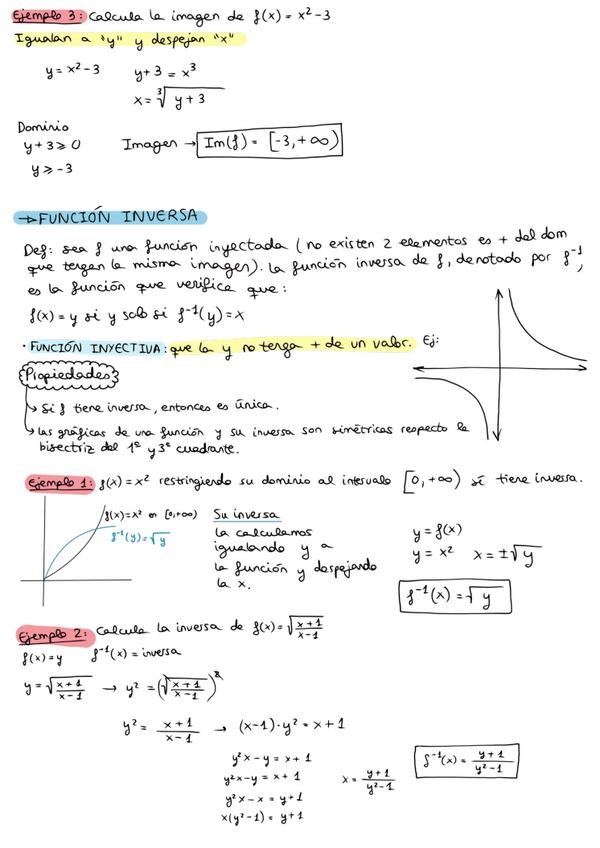 Ejemplo 3: Calcula la imagen de f(x) = x² - 3
Igualan a "y" y despejan "x"
y = x² - 3    y + 3 = x³
x = ∛(y + 3)
Dominio
y + 3 ⩾ 0    Imagen → Im(f) = [-3, +∞)
y ⩾ -3
→ FUNCIÓN INVERSA
Def: sea f una función inyectada (no existen 2 elementos es + del dom
que tengan la misma imagen). La función inversa de f, denotado por f⁻¹,
es la función que verifica que:
f(x) = y si y solo si f⁻¹(y) = x
· FUNCIÓN INYECTIVA: que la y no tenga + de un valor. Ej:
Propiedades
↳ Si f tiene inversa, entonces es única.
↳ Las gráficas de una función y su inversa son simétricas respecto la
bisectriz del 1º y 3º cuadrante.
Ejemplo 1: f(x) = x² restringiendo su dominio al intervalo [0, +∞) sí tiene inversa.
f(x) = x² en [0, +∞)
f⁻¹(y) = √y
Su inversa
la calculamos
igualando y a
la función y despejando
la x.
y = f(x)
y = x²    x = ±√y
f⁻¹(x) = √y
Ejemplo 2: Calcula la inversa de f(x) = √((x+1)/(x-1))
f(x) = y    f⁻¹(x) = inversa
y = √((x+1)/(x-1)) → y² = (√((x+1)/(x-1)))²
y² = (x+1)/(x-1) → (x-1)·y² = x + 1
y²x - y = x + 1
y²x - y = x + 1    x = (y+1)/(y²-1)    f⁻¹(x) = (y+1)/(y²-1)
y²x - x = y + 1
x(y² - 1) = y + 1